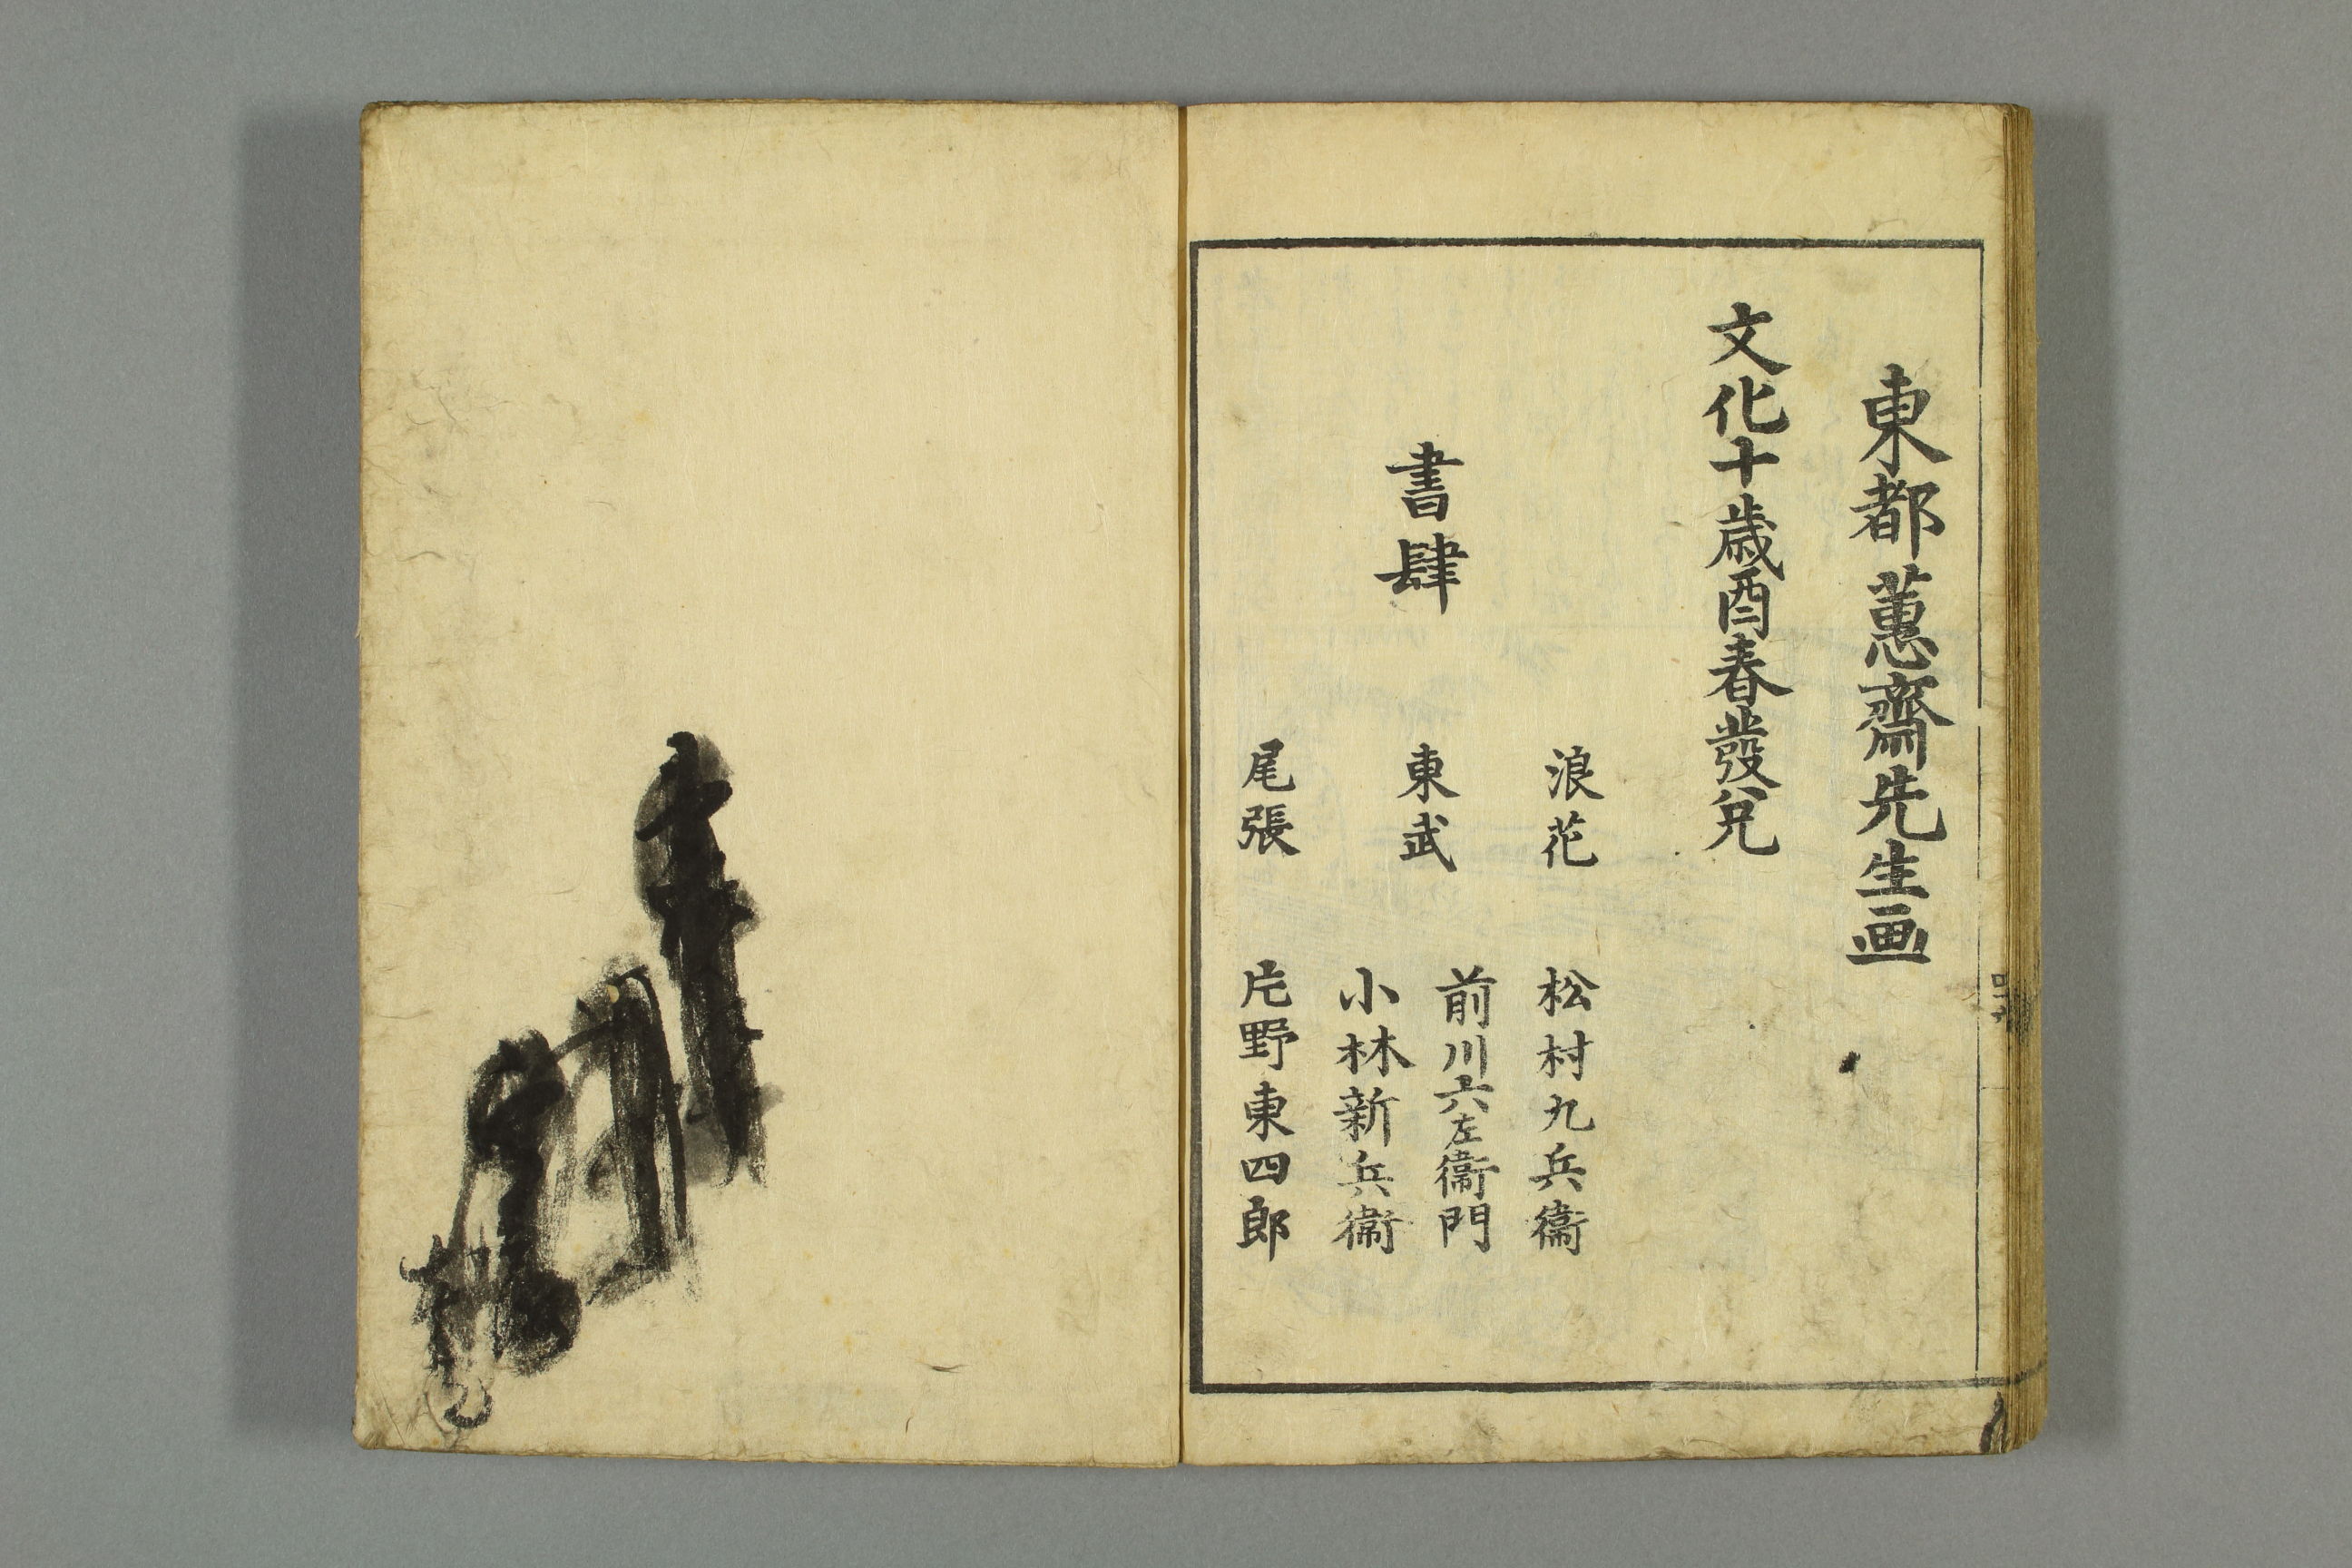 東都蕙齋先生画
文化十歳酉春發兌
書肆
浪花 松村九兵衞
東武 前川六左衞門
小林新兵衞
尾張 片野東四郎